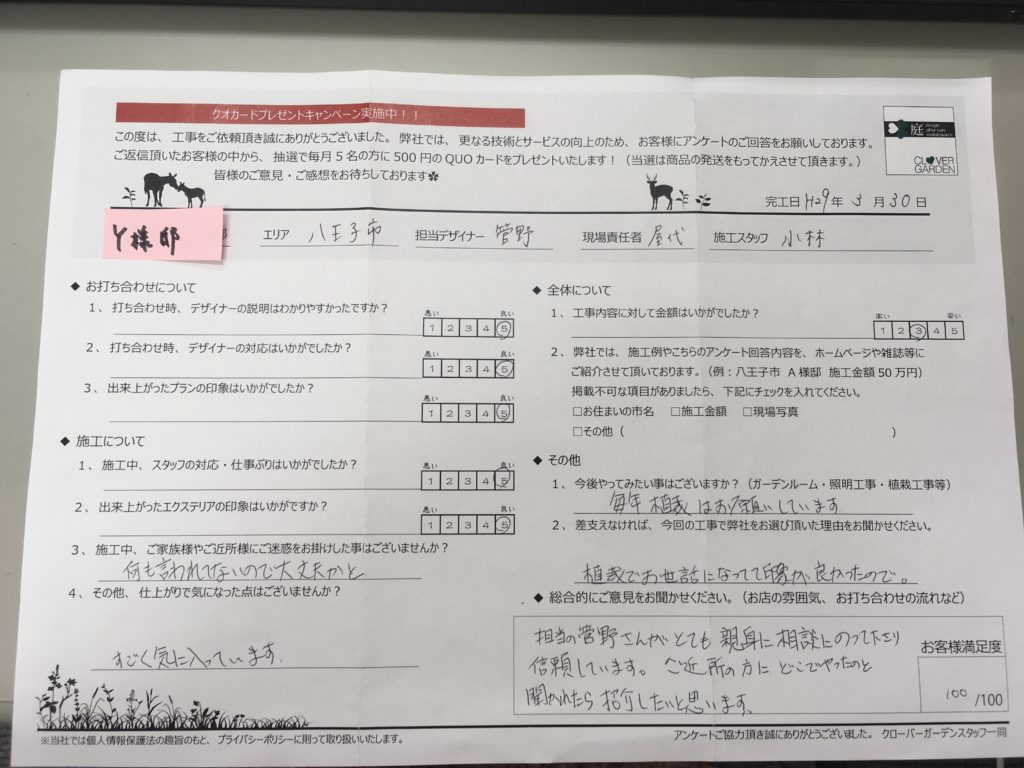 クオカードプレゼントキャンペーン実施中！！
この度は、工事をご依頼頂き誠にありがとうございました。弊社では、更なる技術とサービスの向上のため、お客様にアンケートのご回答をお願いしております。
ご返信頂いたお客様の中から、抽選で毎月5名の方に500円のQUOカードをプレゼントいたします！（当選は商品の発送をもってかえさせて頂きます。）
皆様のご意見・ご感想をお待ちしております✿
庭
CLOVER
GARDEN
完工日 H29年 3月30日
Y様邸 エリア 八王子市 担当デザイナー 管野 現場責任者 屋代 施工スタッフ 小林
◆ お打ち合わせについて
1、打ち合わせ時、デザイナーの説明はわかりやすかったですか？
悪い 良い
1 2 3 4 5
2、打ち合わせ時、デザイナーの対応はいかがでしたか？
悪い 良い
1 2 3 4 5
3、出来上がったプランの印象はいかがでしたか？
悪い 良い
1 2 3 4 5
◆ 施工について
1、施工中、スタッフの対応・仕事ぶりはいかがでしたか？
悪い 良い
1 2 3 4 5
2、出来上がったエクステリアの印象はいかがですか？
悪い 良い
1 2 3 4 5
3、施工中、ご家族様やご近所様にご迷惑をお掛けした事はございませんか？
何も言われてないので大丈夫かと
4、その他、仕上がりで気になった点はございませんか？
すごく気に入っています。
◆ 全体について
1、工事内容に対して金額はいかがでしたか？
高い 安い
1 2 3 4 5
2、弊社では、施工例やこちらのアンケート回答内容を、ホームページや雑誌等に
ご紹介させて頂いております。（例：八王子市 A様邸 施工金額50万円）
掲載不可な項目がありましたら、下記にチェックを入れてください。
□お住まいの市名 □施工金額 □現場写真
□その他（ ）
◆ その他
1、今後やってみたい事はございますか？（ガーデンルーム・照明工事・植栽工事等）
毎年植栽はお願いしています。
2、差支えなければ、今回の工事で弊社をお選び頂いた理由をお聞かせください。
植栽でお世話になってて印象が良かったので。
◆ 総合的にご意見をお聞かせください。（お店の雰囲気、お打ち合わせの流れなど）
担当の管野さんがとても親身に相談にのって下さり
信頼しています。ご近所の方にどこでやったのと
聞かれたら紹介したいと思います。
お客様満足度
100 /100
※当社では個人情報保護法の趣旨のもと、プライバシーポリシーに則って取り扱いいたします。
アンケートご協力頂き誠にありがとうございました。クローバーガーデンスタッフ一同